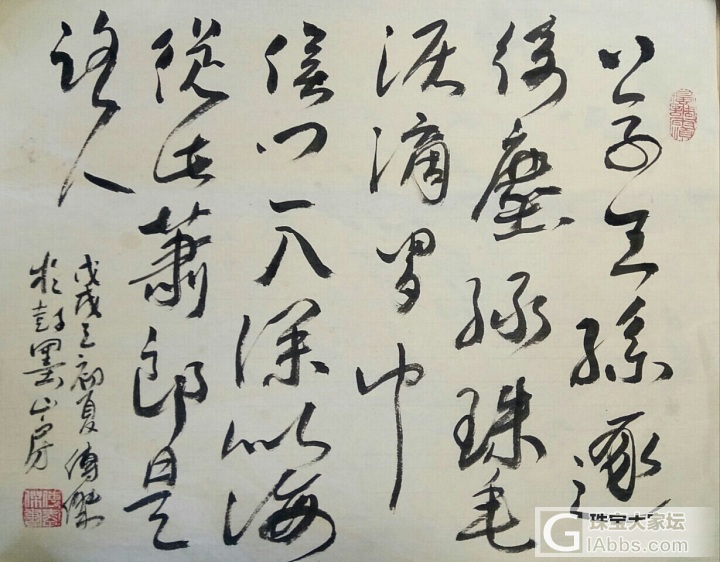 公子王孫逐
後塵綠珠垂
淚滴羅巾
侯門一入深似海
從此蕭郎是
路人
戊戌之初夏傳傑
於墨山房
珠宝大家坛
GIabbs.com